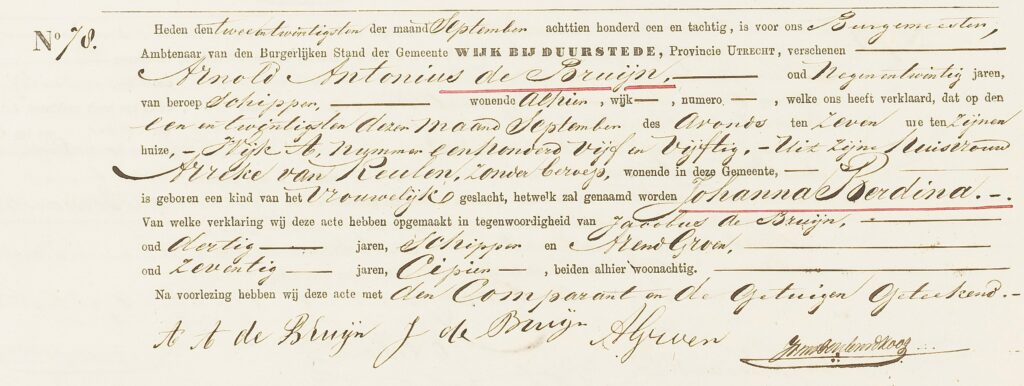 No 78. Heden den tweeentwintigsten der maand September achttien honderd een en tachtig, is voor ons Burgemeester,
Ambtenaar van den Burgerlijken Stand der Gemeente WIJK BIJ DUURSTEDE, Provincie UTRECHT, verschenen
Arnold Antonius de Bruijn, oud Negenentwintig jaren,
van beroep Schipper, wonende Alhier, wijk —, numero —, welke ons heeft verklaard, dat op den
een en twintigsten dezer maand September des Avonds ten Zeven ure ten Zijnen
huize, - Wijk A, nummer eenhonderd vijf en vijftig, - Uit zijne Huisvrouw
van Keulen, Zonder beroep, wonende in deze Gemeente, —
is geboren een kind van het Vrouwelijke geslacht, hetwelk zal genaamd worden Johanna Berdina. -
Van welke verklaring wij deze acte hebben opgemaakt in tegenwoordigheid van Jacobus de Bruijn,
oud dertig — jaren, Schipper en Arend Groen,
oud Zeventig — jaren, Cipier —, beiden alhier woonachtig.
Na voorlezing hebben wij deze acte met den Comparant en de Getuigen Geteekend. -
A A de Bruijn J de Bruijn A Groen